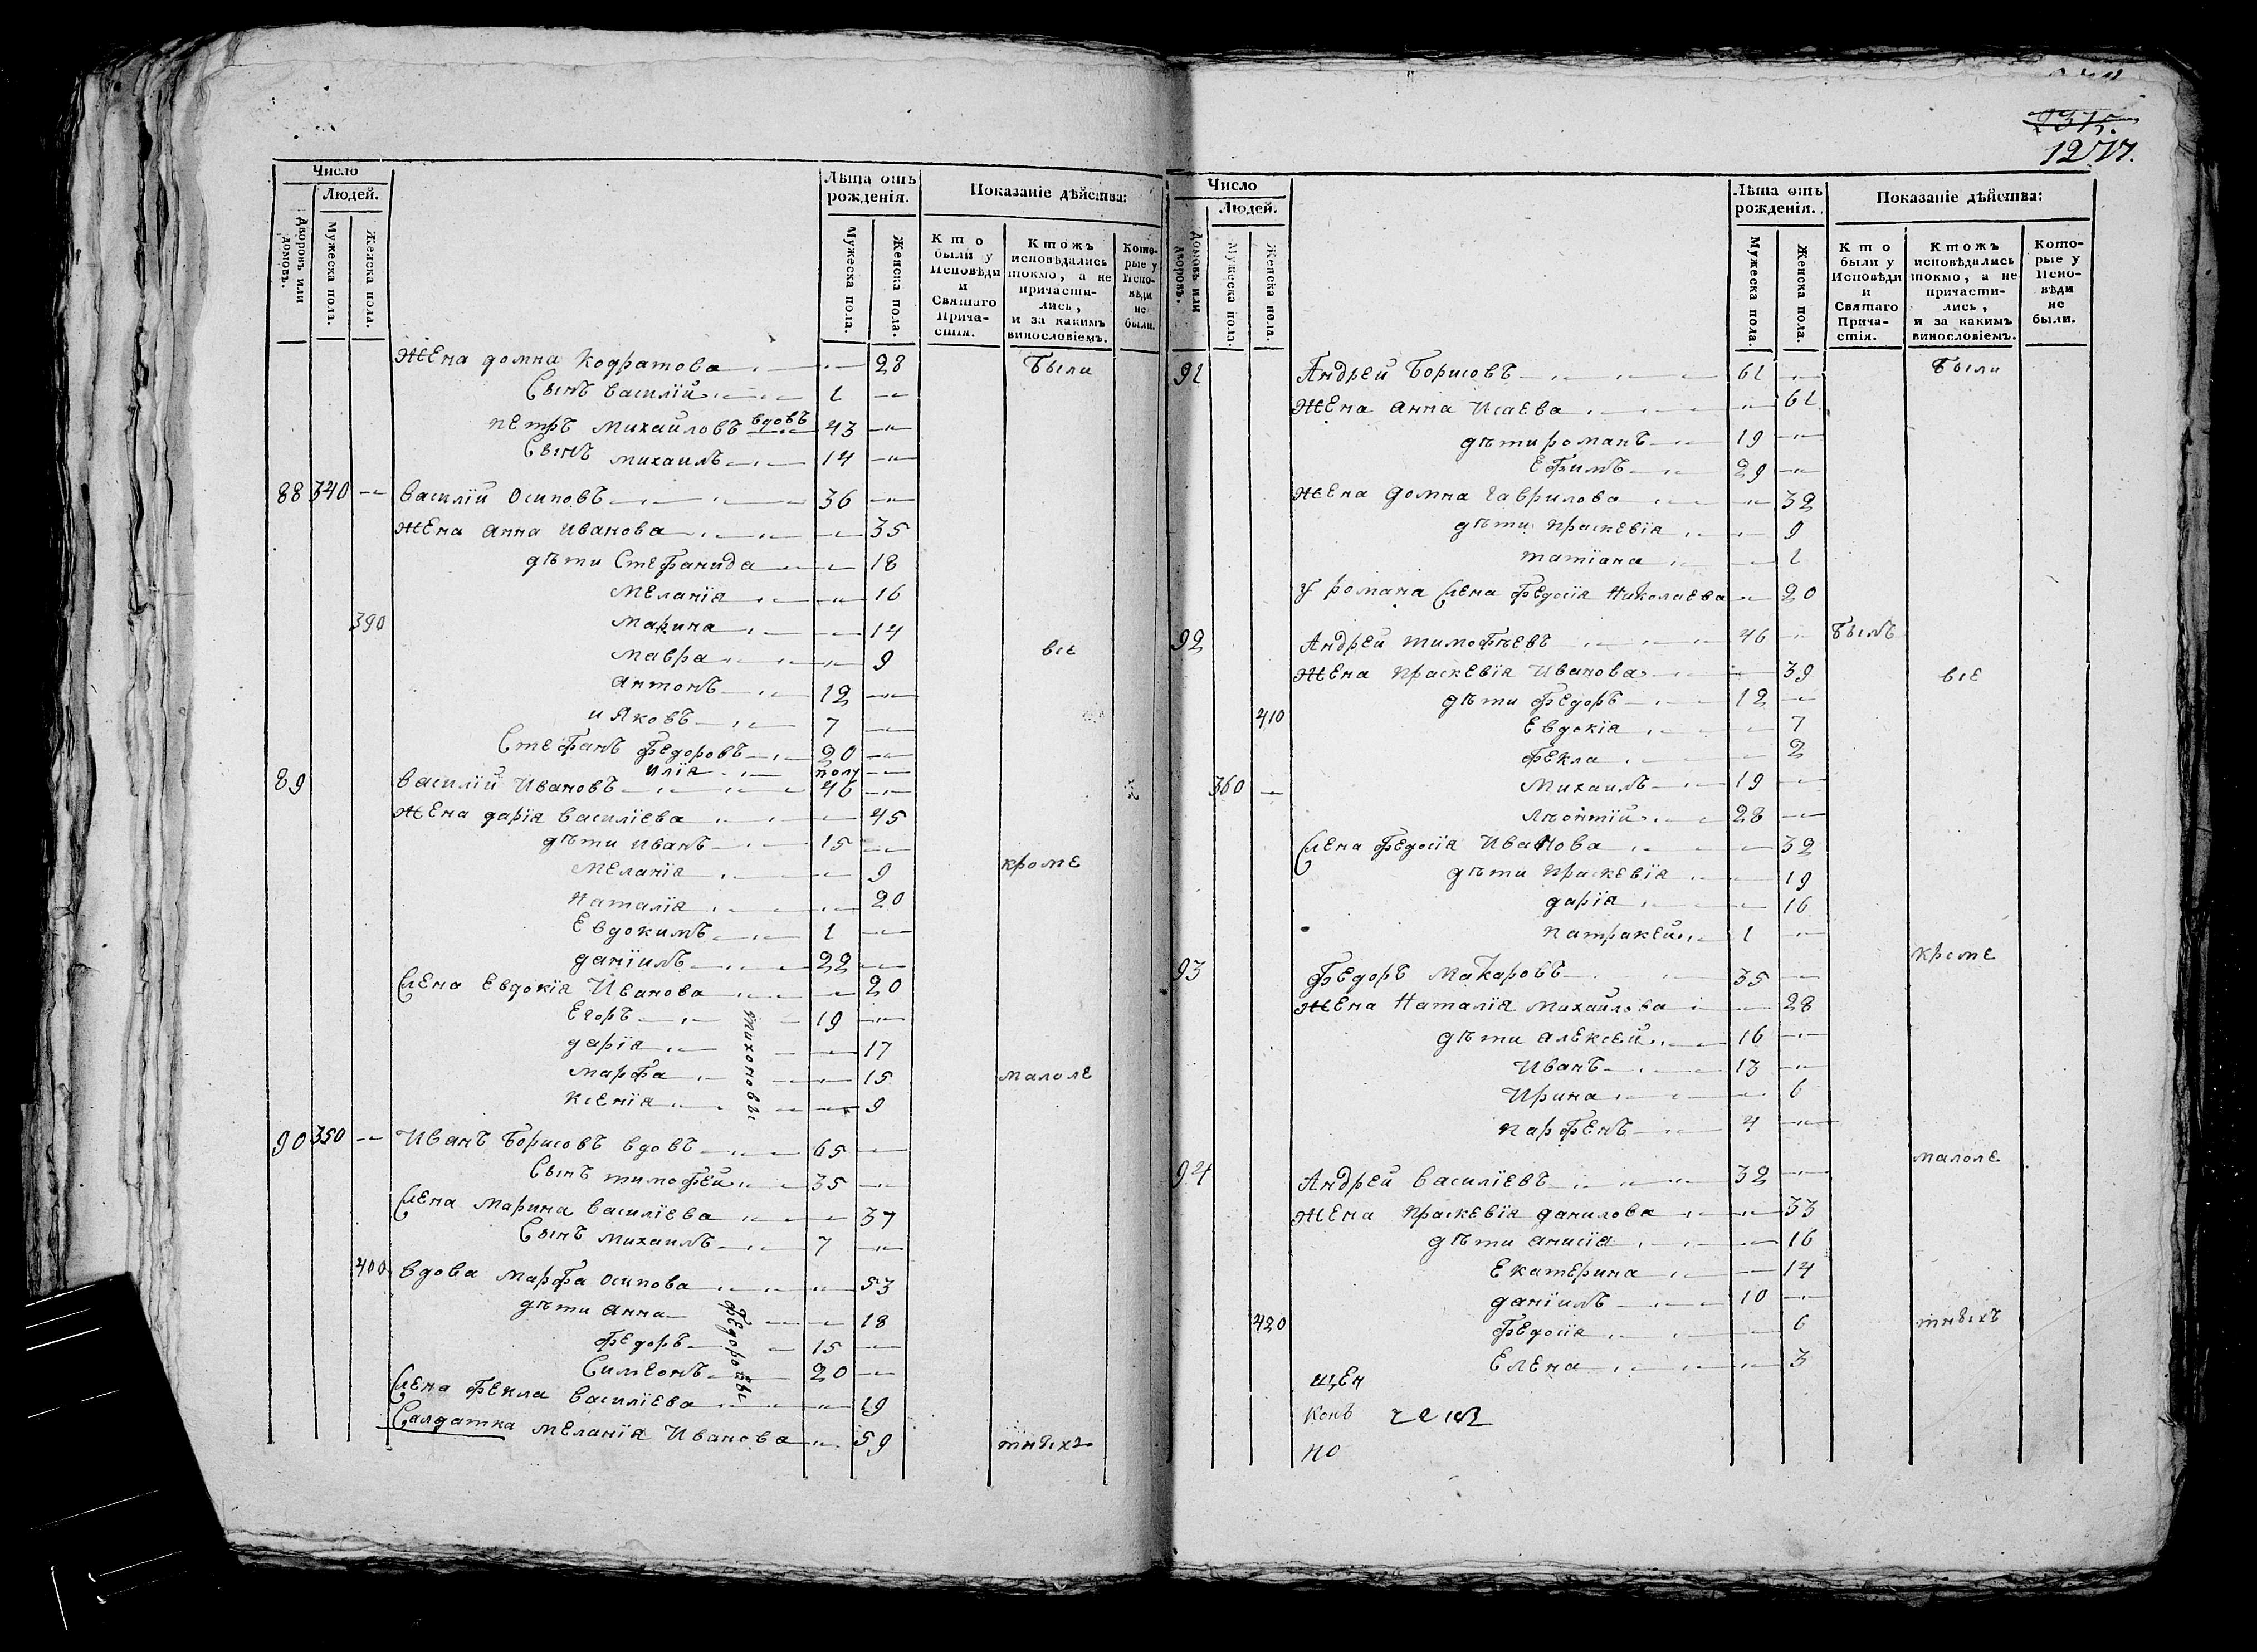 1375.
1277.
Число
Людей.
Дворовъ или домовъ.
Мужеска пола.
Женска пола.
Лѣта отъ рожденія.
Мужеска пола.
Женска пола.
Показаніе дѣйства:
Кто были у Исповѣди и Святаго Причастія.
Ктожъ исповѣдались токмо, а не причастились, и за какимъ винословіемъ.
Которые у Исповѣди не были.
жена домна Кодратова 28 были
Сынъ василій 1
петръ михайловъ вдовъ 43
Сынъ михаилъ 14
88 340 василій Осиповъ 36
жена анна Иванова 35
дѣти Стефанида 18
меланія 16
390 марина 14
мавра 9 все
антонъ 12
и Яковъ 7
Стефанъ федоровъ 20
илія полу
89 василій Ивановъ 46
жена дарія василіева 45
дѣти иванъ 15
меланія 9 кроме
наталія 20
Евдокимъ 1
даніилъ 22
Жена Евдокія Иванова 20
Егоръ 19
дарія 17
марфа 15 малоле
ксенія 9
тихоновы
90 350 Иванъ борисовъ вдовъ 65
Сынъ тимофей 35
Жена марина василіева 37
Сынъ михаилъ 7
400 вдова марфа осипова 53
дѣти анна 18
федоръ 15
Симеонъ 20
федоровы
Жена фекла василіева 19
Салдатка меланія Иванова 59 тныхъ
Число
Людей.
Домовъ или дворовъ.
Мужеска пола.
Женска пола.
Лѣта отъ рожденія.
Мужеска пола.
Женска пола.
Показаніе дѣйства:
Кто были у Исповѣди и Святаго Причастія.
Ктожъ исповѣдались токмо, а не причастились, и за какимъ винословіемъ.
Которые у Исповѣди не были.
91 Андрей борисовъ 61 были
жена анна Исаева 61
дѣти романъ 19
Ефимъ 29
жена домна гаврилова 32
дѣти праскевія 9
татіана 1
У романа Жена федосія Николаева 20
92 Андрей тимофѣевъ 46 былъ
жена праскевія Иванова 39 все
дѣти федоръ 12
410 Евдокія 7
фекла 2
360 Михаилъ 19
Лѣонтій 28
Жена федосія Иванова 32
дѣти праскевія 19
дарія 16
патракей 1
кроме
93 федоръ макаровъ 35
жена Наталія михайлова 28
дѣти алексей 16
Иванъ 13
Ирина 6
парфенъ 4
малоле
94 Андрей василіевъ 32
жена праскевія данилова 33
дѣти анисія 16
Екатерина 14
даніилъ 10
420 федосія 6 тныхъ
Елена 3
щен
Конъ
но